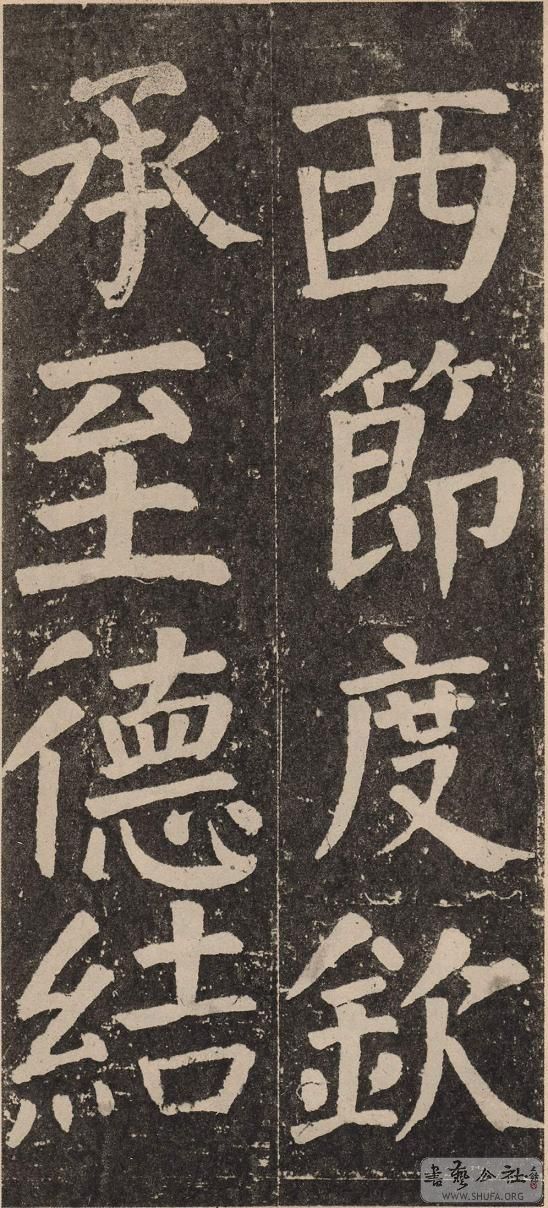 西節度欽
承至德結
書藝公社
WWW.SHUFA.ORG